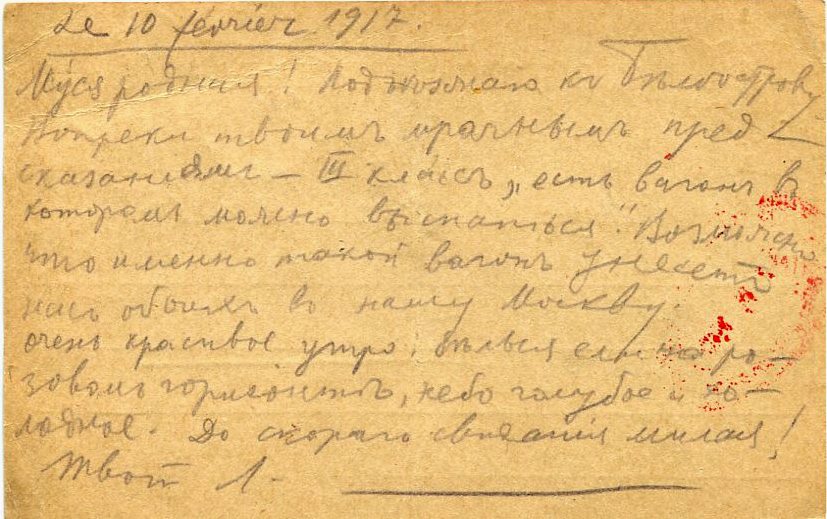 Le 10 février 1917.
Муся родная! Подъѣзжаю къ Бѣлоострову
Вопреки твоимъ мрачнымъ пред-
сказаніямъ – III классъ „есть вагонъ въ
которомъ можно выспаться". Возможно
что именно такой вагонъ унесетъ
насъ обоихъ въ нашу Москву.
очень красивое утро, бѣлыя ели на ро-
зовомъ горизонтѣ, небо голубое и хо-
лодное. До скораго свиданія милая!
Твой Л.